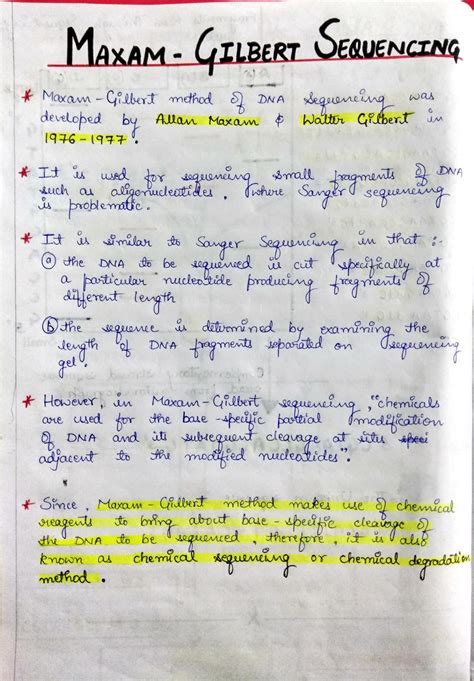 MAXAM - GILBERT SEQUENCING
* Maxam - Gilbert method of DNA sequencing was
developed by Allan Maxam & Walter Gilbert in
1976-1977.
* It is used for sequencing small fragments of DNA
such as oligonucleotides, where Sanger sequencing
is problematic.
* It is similar to Sanger Sequencing in that :-
(a) the DNA to be sequenced is cut specifically at
a particular nucleotide producing fragments of
different length
(b) the sequence is determined by examining the
length of DNA fragments separated on sequencing
gel.
* However, in Maxam-Gilbert sequencing, "chemicals
are used for the base-specific partial modification
of DNA and its subsequent cleavage at sites speci
adjacent to the modified nucleotides".
* Since, Maxam-Gilbert method makes use of chemical
reagents to bring about base-specific cleavage of
the DNA to be sequenced, therefore, it is also
known as chemical sequencing or chemical degradation
method.